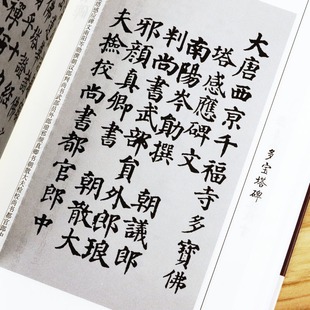 大唐西京千福寺多寶佛
塔感應碑文
南陽岑勛撰 朝議郎
判尚書武部員外郎琅
邪顏真卿書 朝散大
夫撿校尚書都官郎中
多宝塔碑